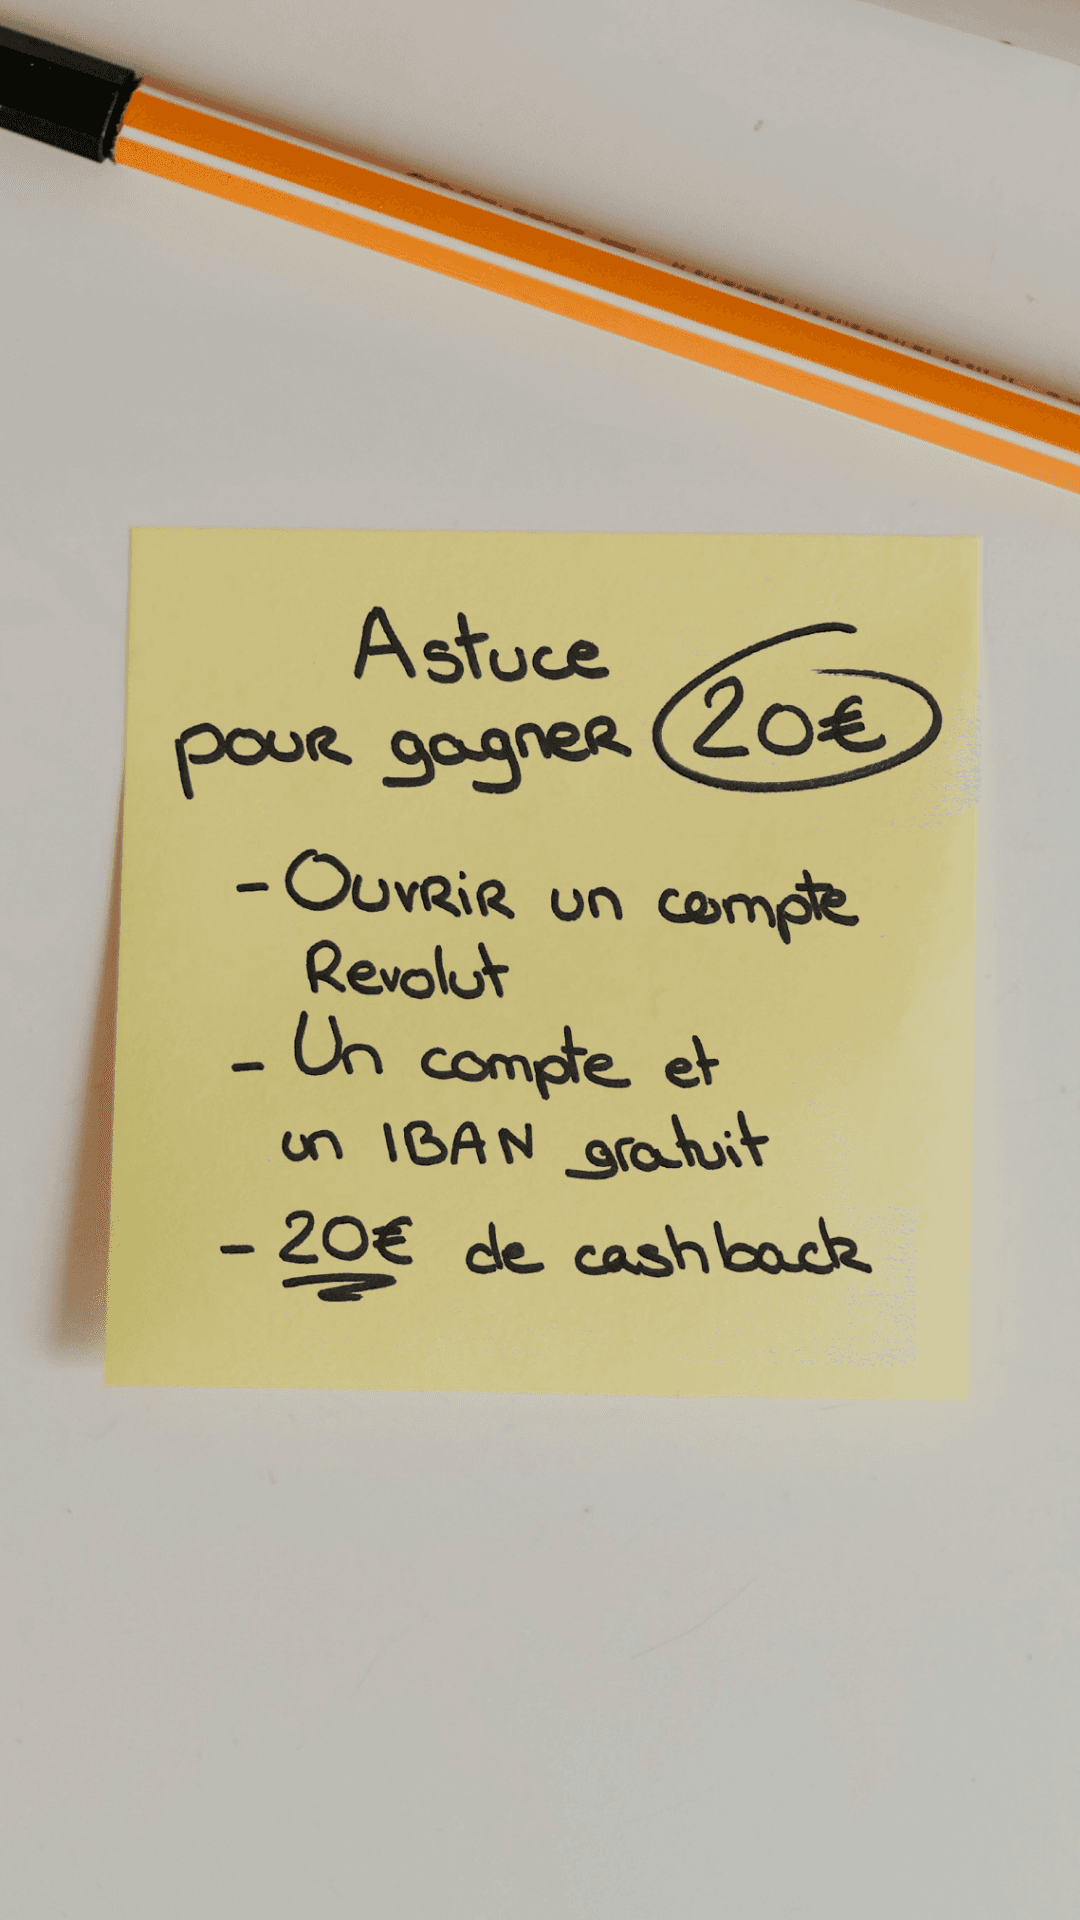 Astuce
pour gagner 20€
- Ouvrir un compte
Revolut
- Un compte et
un IBAN gratuit
- 20€ de cashback